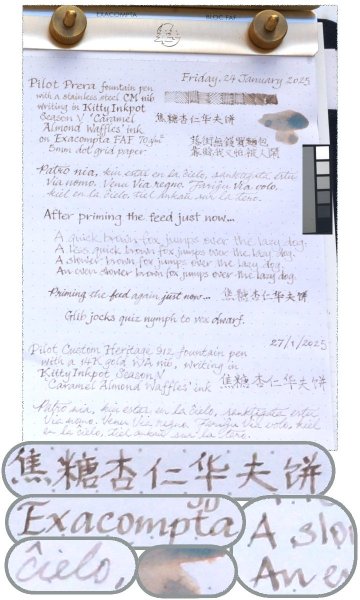 EXACOMPTA
BLOC FAF
Friday, 24 January 2025
Pilot Prera fountain pen
with a stainless steel CM nib
writing in Kitty Inkpot
Season V "Caramel
Almond Waffles" ink
on Exacompta FAF 70g/m²
5mm dot grid paper
焦糖杏仁华夫饼
Patro nia, kiu estas en la ĉielo, sanktigata estu
Via nomo. Venu Via regno. Fariĝu Via volo,
kiel en la ĉielo tiel ankaŭ sur la tero.
After priming the feed just now...
A quick brown fox jumps over the lazy dog.
A less quick brown fox jumps over the lazy dog.
A slower brown fox jumps over the lazy dog.
An even slower brown fox jumps over the lazy dog.
Priming the feed again just now...
焦糖杏仁华夫饼
Glib jocks quiz nymph to vex dwarf.
27/1/2025
Pilot Custom Heritage 912 fountain pen
with a 14K gold WA nib, writing in
Kitty Inkpot Season V
"Caramel Almond Waffles" ink
焦糖杏仁华夫饼
Patro nia, kiu estas en la ĉielo, sanktigata estu
Via nomo. Venu Via regno. Fariĝu Via volo, kiel
en la ĉielo, tiel ankaŭ sur la tero.
焦糖杏仁华夫饼
Exacompta
A slo
ĉielo,
An e